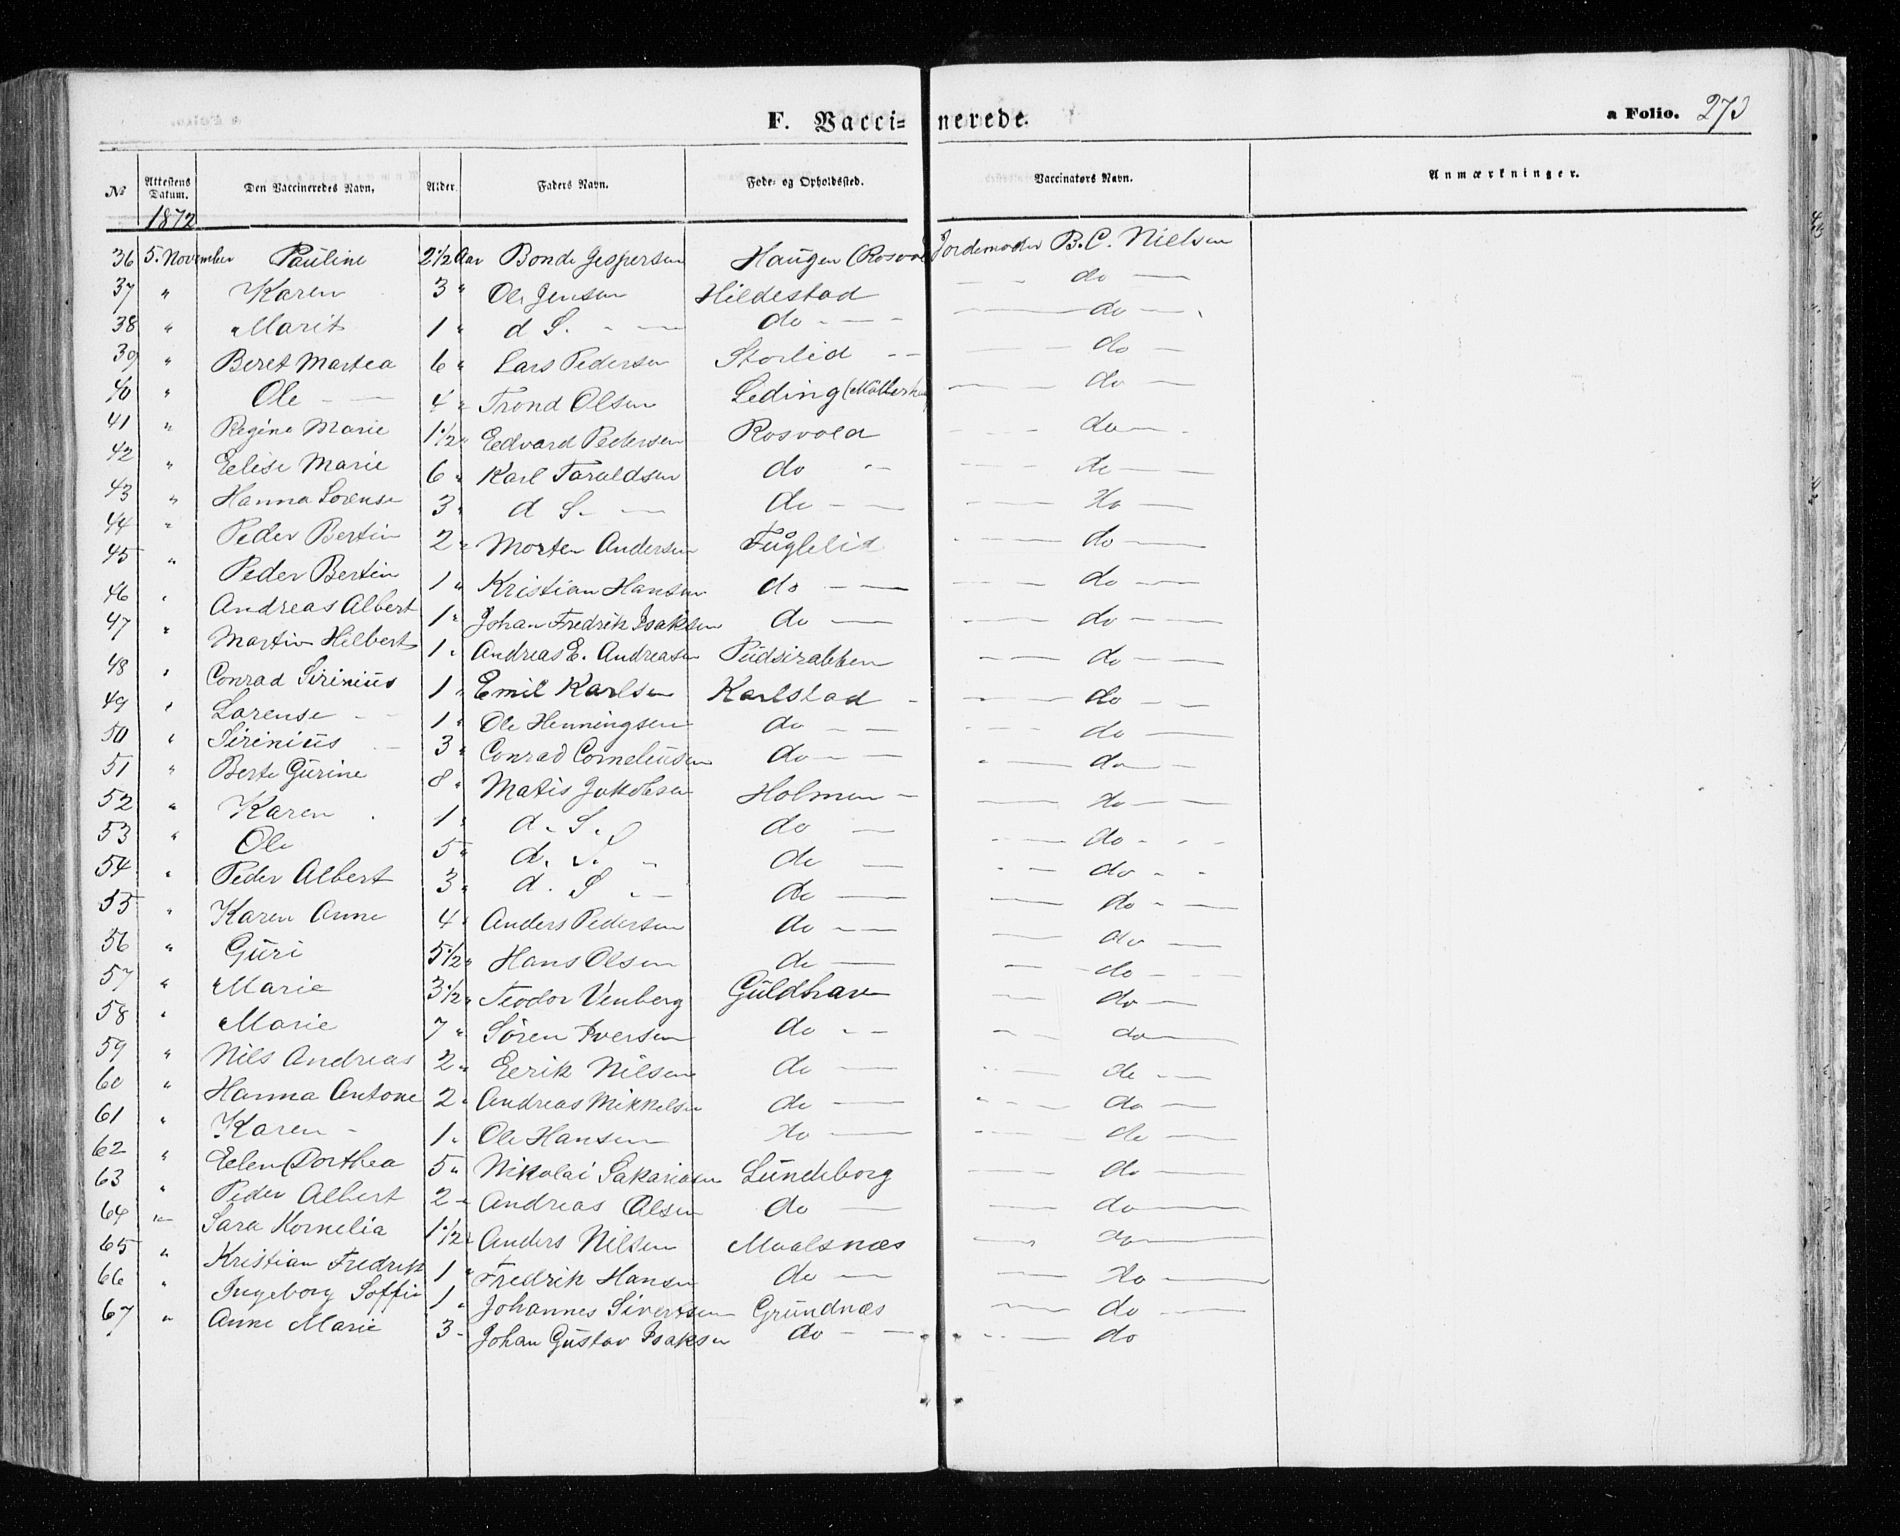 F. Vaccinerede. a Folio. 273
№ Attestens Datum. Den Vaccineredes Navn. Alder. Faders Navn. Føde- og Opholdssted. Vaccinatørs Navn. Anmærkninger.
1872
36 5. November Pauline 2 1/2 Aar Bonde Jespersen Haugen (Rosvol Jordemoder B. C. Nielsen
37 " Karen 3 " Ole Jensen Hildestad — do —
38 " Marit 1 " d S. - — do - — - — do — .
39 " Beret Martea 6 " Lars Pedersen Storlid - - — do —
40 " Ole — — 4 " Trond Olsen Leding ( — do —
41 " Regine Marie 1 1/2 " Eedvard Pedersen Rosvold — do — .
42 " Eelise Marie 6 " Karl Taraldsen do - — do —
43 " Hanna Lorense 3 " d S. — do - — — do —
44 " Peder Bertin 2 " Morten Andersen Fuglelid — do —
45 " Peder Bertin 1 " Kristian Hansen do - — — do —
46 " Andreas Albert 1 " Johan Fredrik Isaksen do — — do —
47 " Martin Hilbert 1 " Andreas E. Andreasen Pudsirabben — do —
48 " Conrad Sirinius 1 " Emil Karlsen Karlstad - — do —
49 " Lorense - - 1 " Ole Henningsen do - — — do —
50 " Sirinius - — 3 " Conrad Corneliusen do - — — do —
51 " Berte Gurine 8 " Matis Jakobsen Holmen - — do —
52 " Karen . 1 " d. S. do — — do - - -
53 " Ole 5 " d. S. - do — — do - -
54 " Peder Albert 3 " d. S. - do — — do - —
55 " Karen Anne 4 " Anders Pedersen do - — — do —
56 " Guri 5 1/2 " Hans Olsen do — — do —
57 " Marie 3 1/2 " Teodor Venberg Guldhav — do —
58 " Marie 7 " Søren Iversen do - - — do —
59 " Nils Andreas 2 " Eerik Nilsen do — — do —
60 " Hanna Antone 2 " Andreas Mikkelsen do — — do —
61 " Karen - 1 " Ole Hansen do — — do —
62 " Eelen Dorthea 5 " Nikolai Sakariasen Lundeborg — do —
63 " Peder Albert 2 " Andreas Olsen do — — do —
64 " Sara Kornelia 1 1/2 " Anders Nilsen Maalsnæs — do —
65 " Kristian Fredrik 1 " Fredrik Hansen do — — do —
66 " Ingeborg Soffie 1 " Johannes Sivertsen Grundnæs — do —
67 " Anne Marie 3 - Johan Gustav Isaksen do - — — do